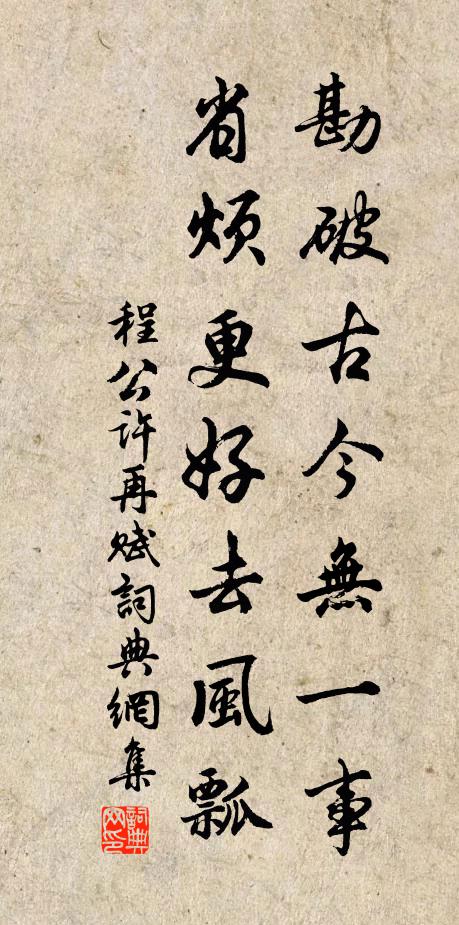 勘破古今無一事
省煩更好去風瓢
程公許再賦詞典網集
詞典網印